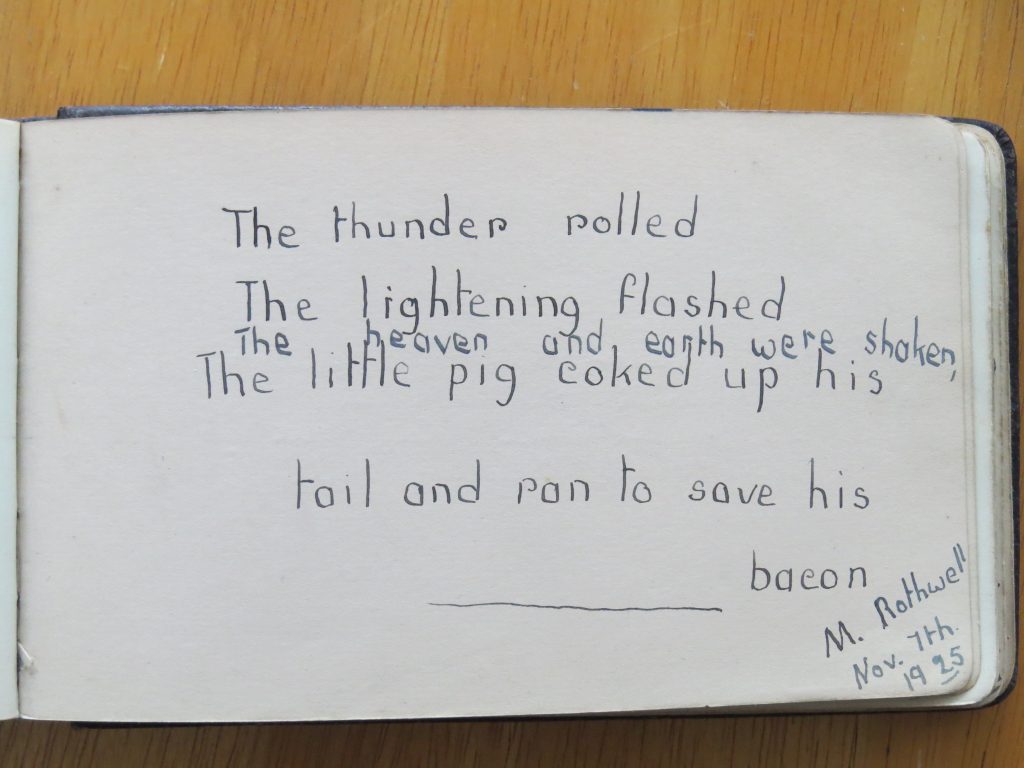 The thunder rolled
The lightening flashed
The heaven and earth were shaken,
The little pig coked up his
tail and ran to save his
bacon
M. Rothwell
Nov. 7th.
1925